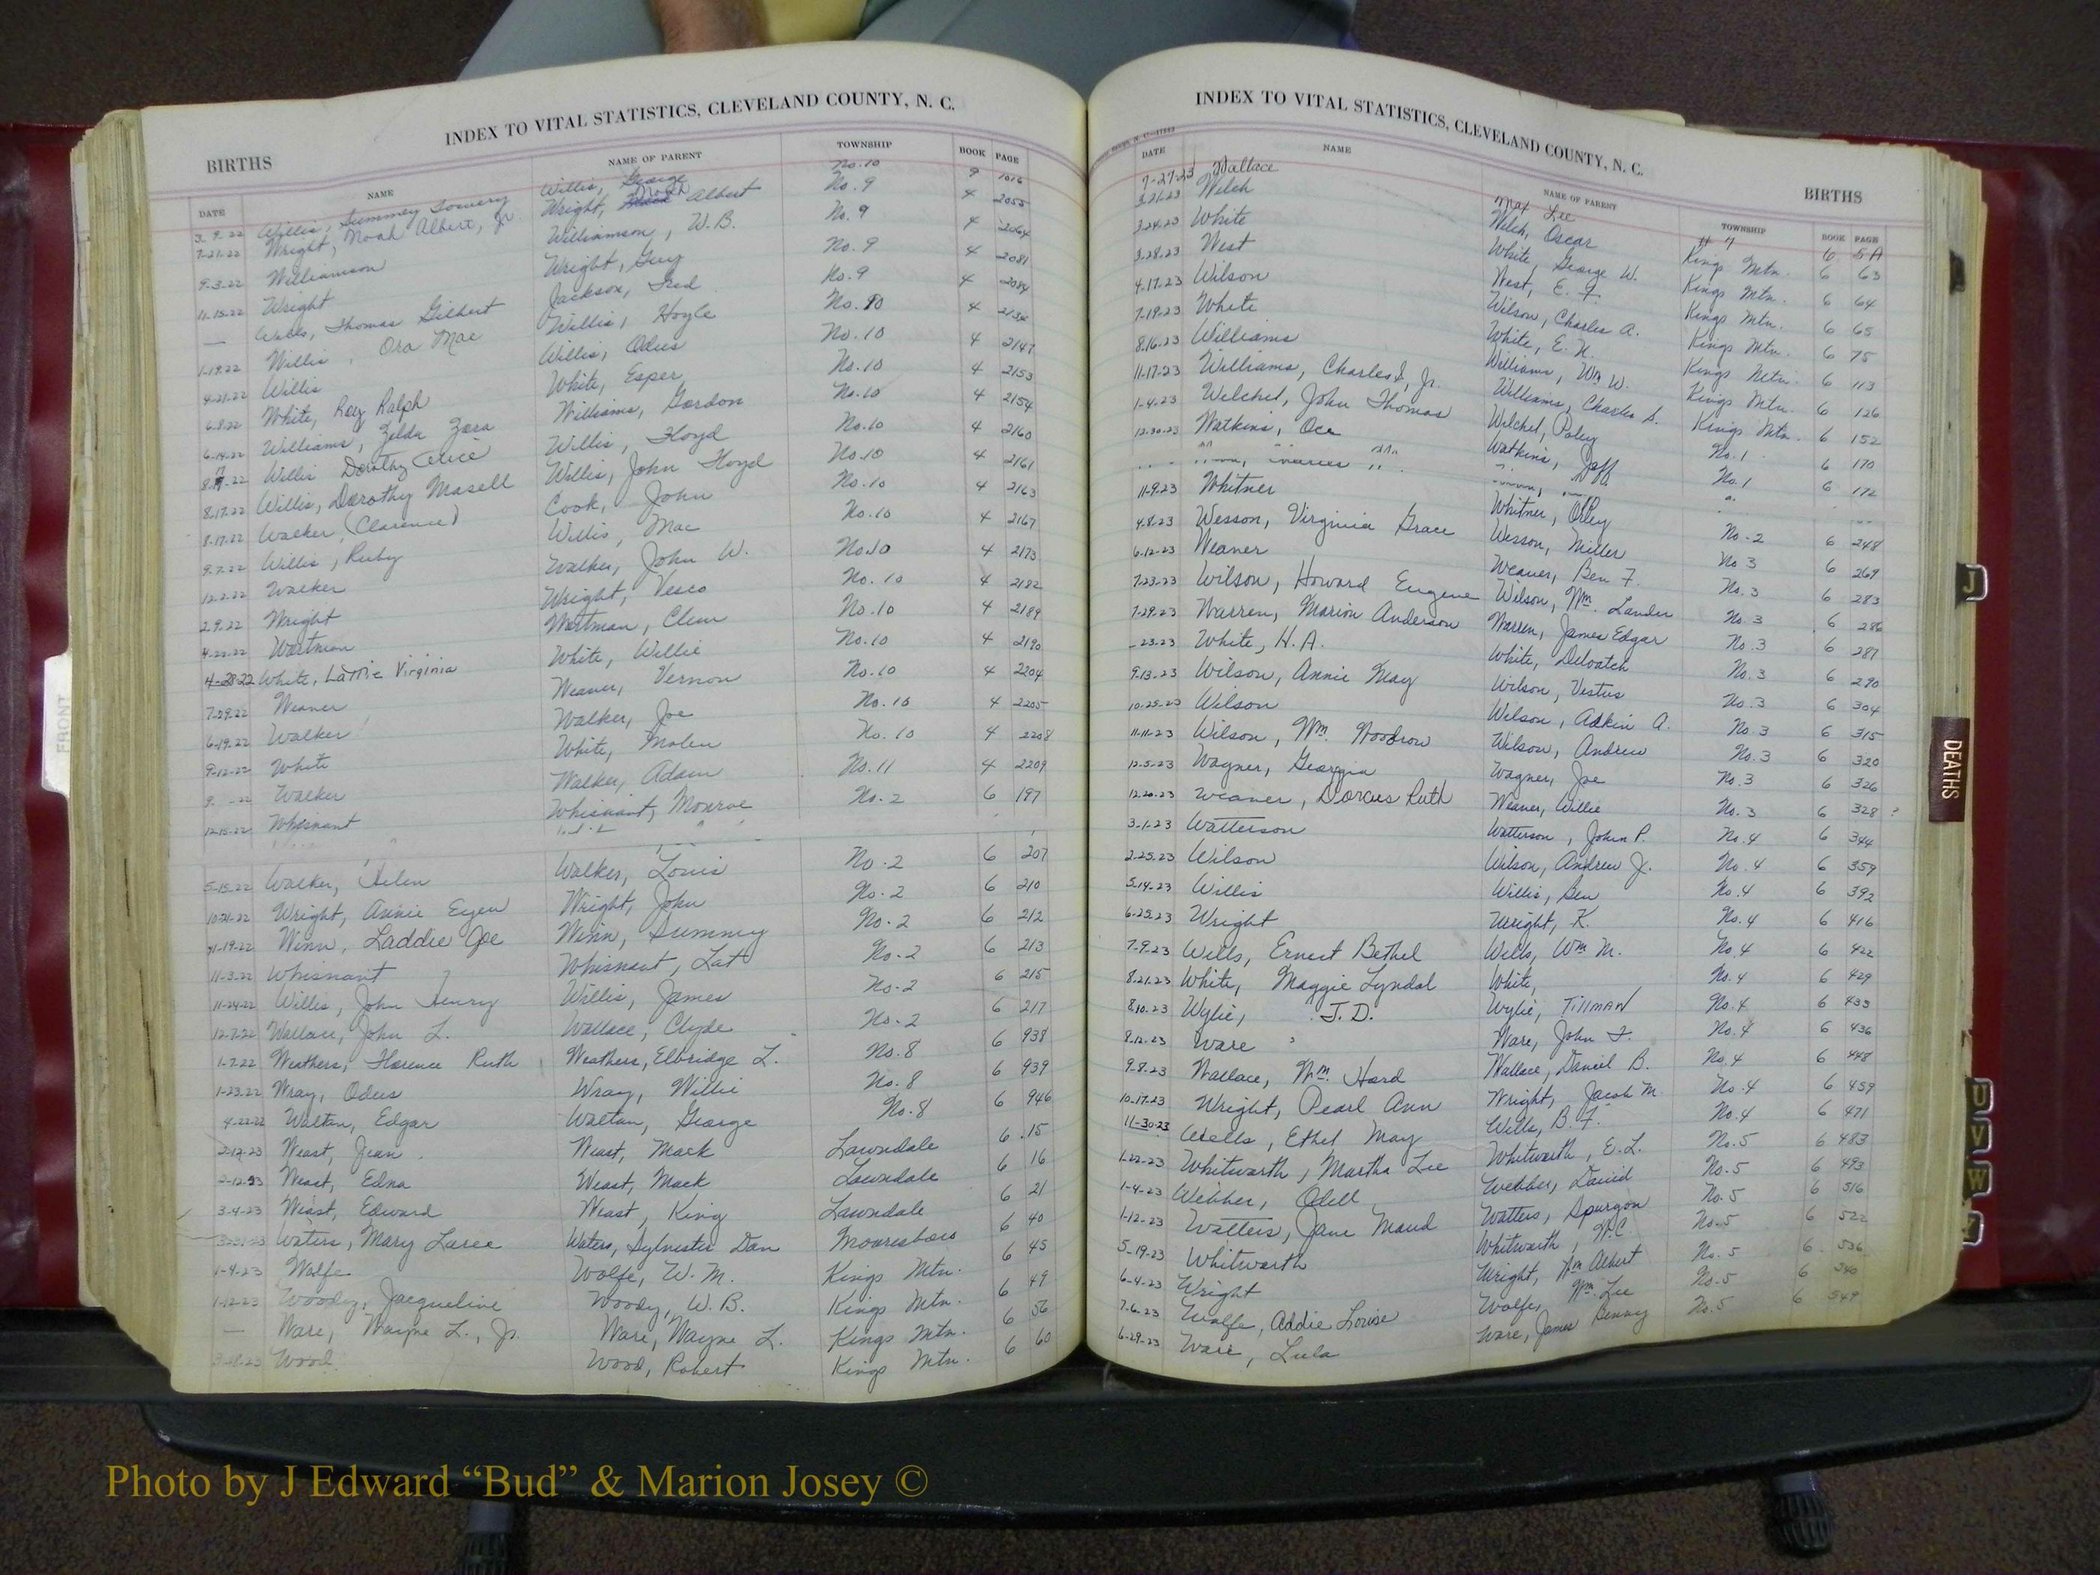 INDEX TO VITAL STATISTICS, CLEVELAND COUNTY, N. C.
BIRTHS
DATE NAME NAME OF PARENT TOWNSHIP BOOK PAGE
3-9-22 Willis, Summey Lowery Willis, George No. 10 9 1016
7-21-22 Wright, Noah Albert, Jr. Wright, Noah Albert No. 9 4 2055
9-3-22 Williamson Williamson, W. B. No. 9 4 2064
11-15-22 Wright Wright, Guy No. 9 4 2081
— Wells, Thomas Gilbert Jackson, Fred No. 9 4 2084
1-19-22 Willis, Ora Mae Willis, Hoyle No. 10 4 2136
4-21-22 Willis Willis, Odus No. 10 4 2147
6-8-22 White, Roy Ralph White, Esper No. 10 4 2153
6-14-22 Williams, Zelda Zora Williams, Gordon No. 10 4 2154
8-17-22 Willis Dorothy Alice Willis, Floyd No. 10 4 2160
8-17-22 Willis, Dorothy Masell Willis, John Floyd No. 10 4 2161
8-17-22 Walker, (Clarence) Cook, John No. 10 4 2163
9-7-22 Willis, Ruby Willis, Mac No. 10 4 2167
12-2-22 Walker Walker, John W. No. 10 4 2173
2-9-22 Wright Wright, Vesco No. 10 4 2182
4-22-22 Wortman Wortman, Clem No. 10 4 2189
4-28-22 White, Lattie Virginia White, Willie No. 10 4 2190
7-29-22 Weaver Weaver, Vernon No. 10 4 2204
6-19-22 Walker Walker, Joe No. 10 4 2205
9-12-22 White White, Molen No. 10 4 2208
9- -22 Walker Walker, Adam No. 11 4 2209
12-15-22 Whisnant Whisnant, Monroe No. 2 6 197
5-15-22 Walker, Helen Walker, Louis No. 2 6 207
10-21-22 Wright, Annie Eyen Wright, John No. 2 6 210
11-19-22 Winn, Laddie Joe Winn, Summey No. 2 6 212
11-3-22 Whisnant Whisnant, Lat No. 2 6 213
11-24-22 Willis, John Henry Willis, James No. 2 6 215
12-7-22 Wallace, John L. Wallace, Clyde No. 2 6 217
1-7-22 Weathers, Florence Ruth Weathers, Elbridge L. No. 8 6 938
1-23-22 Wray, Odus Wray, Willie No. 8 6 939
4-22-22 Walton, Edgar Walton, George No. 8 6 946
2-12-23 Weast, Jean Weast, Mack Lawndale 6 15
2-12-23 Weast, Edna Weast, Mack Lawndale 6 16
3-4-23 Weast, Edward Weast, King Lawndale 6 21
Waters, Mary Laree Waters, Sylvester Dan Mooresboro 6 40
1-4-23 Wolfe Wolfe, W. M. Kings Mtn. 6 45
1-12-23 Woody, Jacqueline Woody, W. B. Kings Mtn. 6 49
— Ware, Wayne L., Jr. Ware, Wayne L. Kings Mtn. 6 56
3-18-23 Wood Wood, Robert Kings Mtn. 6 60
INDEX TO VITAL STATISTICS, CLEVELAND COUNTY, N. C.
BIRTHS
DATE NAME NAME OF PARENT TOWNSHIP BOOK PAGE
7-27-23 Wallace Max Lee # 7 6 5A
3-21-23 Welch Welch, Oscar Kings Mtn. 6 63
3-24-23 White White, George W. Kings Mtn. 6 64
3-28-23 West West, E. F. Kings Mtn. 6 65
4-17-23 Wilson Wilson, Charles A. Kings Mtn. 6 75
7-19-23 White White, E. N. Kings Mtn. 6 113
8-16-23 Williams Williams, Wm W. Kings Mtn. 6 126
11-17-23 Williams, Charles S., Jr. Williams, Charles S. Kings Mtn. 6 152
1-4-23 Welchel, John Thomas Welchel, Poley No. 1 6 170
12-30-23 Watkins, Oce Watkins, Jaff No. 1 6 172
11-9-23 Whitner Whitner, Olley No. 2 6 248
4-8-23 Wesson, Virginia Grace Wesson, Miller No 3 6 269
6-12-23 Weaver Weaver, Ben F. No. 3 6 283
7-23-23 Wilson, Howard Eugene Wilson, Wm. Lander No. 3 6 286
7-29-23 Warren, Marion Anderson Warren, James Edgar No. 3 6 287
-23-23 White, H. A. White, Deloatch No. 3 6 290
9-13-23 Wilson, Annie May Wilson, Vestus No. 3 6 304
10-25-23 Wilson Wilson, Adkin A. No. 3 6 315
11-11-23 Wilson, Wm. Woodrow Wilson, Andrew No. 3 6 320
12-5-23 Wagner, Georgia Wagner, Joe No. 3 6 326
12-20-23 Weaver, Dorcus Ruth Weaver, Willie No. 3 6 328 ?
3-1-23 Watterson Watterson, John P. No. 4 6 344
2-25-23 Wilson Wilson, Andrew J. No. 4 6 359
5-14-23 Willis Willis, Ben No. 4 6 392
6-25-23 Wright Wright, K. No. 4 6 416
7-9-23 Wells, Ernest Bethel Wells, Wm M. No. 4 6 422
8-21-23 White, Maggie Lyndal White, No. 4 6 429
8-10-23 Wylie, J. D. Wylie, Tillman No. 4 6 433
8-12-23 Ware Ware, John F. No. 4 6 436
9-8-23 Wallace, Wm. Hard Wallace, Daniel B. No. 4 6 448
10-17-23 Wright, Pearl Ann Wright, Jacob M. No. 4 6 459
11-30-23 Wells, Ethel May Wells, B. F. No. 4 6 471
1-22-23 Whitworth, Martha Lee Whitworth, E. L. No. 5 6 483
1-4-23 Webber, Odell Webber, David No. 5 6 493
1-12-23 Watters, Jane Maud Watters, Spurgon No. 5 6 516
5-19-23 Whitworth Whitworth, W. C. No. 5 6 522
6-4-23 Wright Wright, Wm Albert No. 5 6 536
7-6-23 Wolfe, Addie Louise Wolfe, Wm. Lee No. 5 6 540
6-29-23 Ware, Lula Ware, James Benny No. 5 6 549
FRONT
J
DEATHS
U
V
W
Photo by J Edward “Bud” & Marion Josey ©